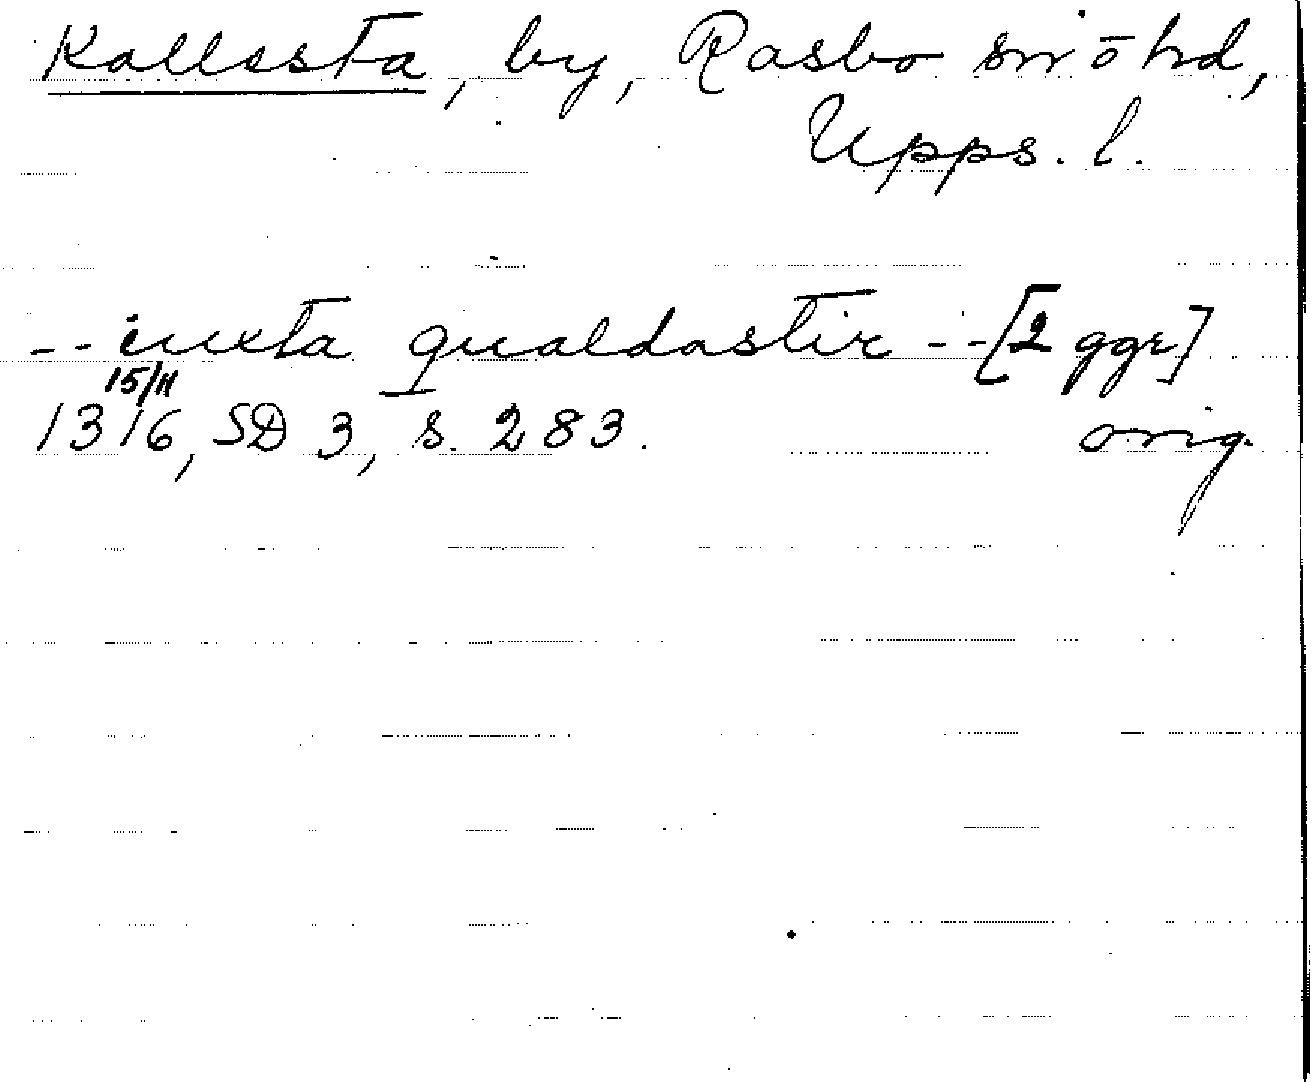 Kallssta, by, Rasbo sn ö hd,
Upps. l.
-- iuxta qualdastir -- [2 ggr]
15/11
1316, SD 3, s. 283. orig.